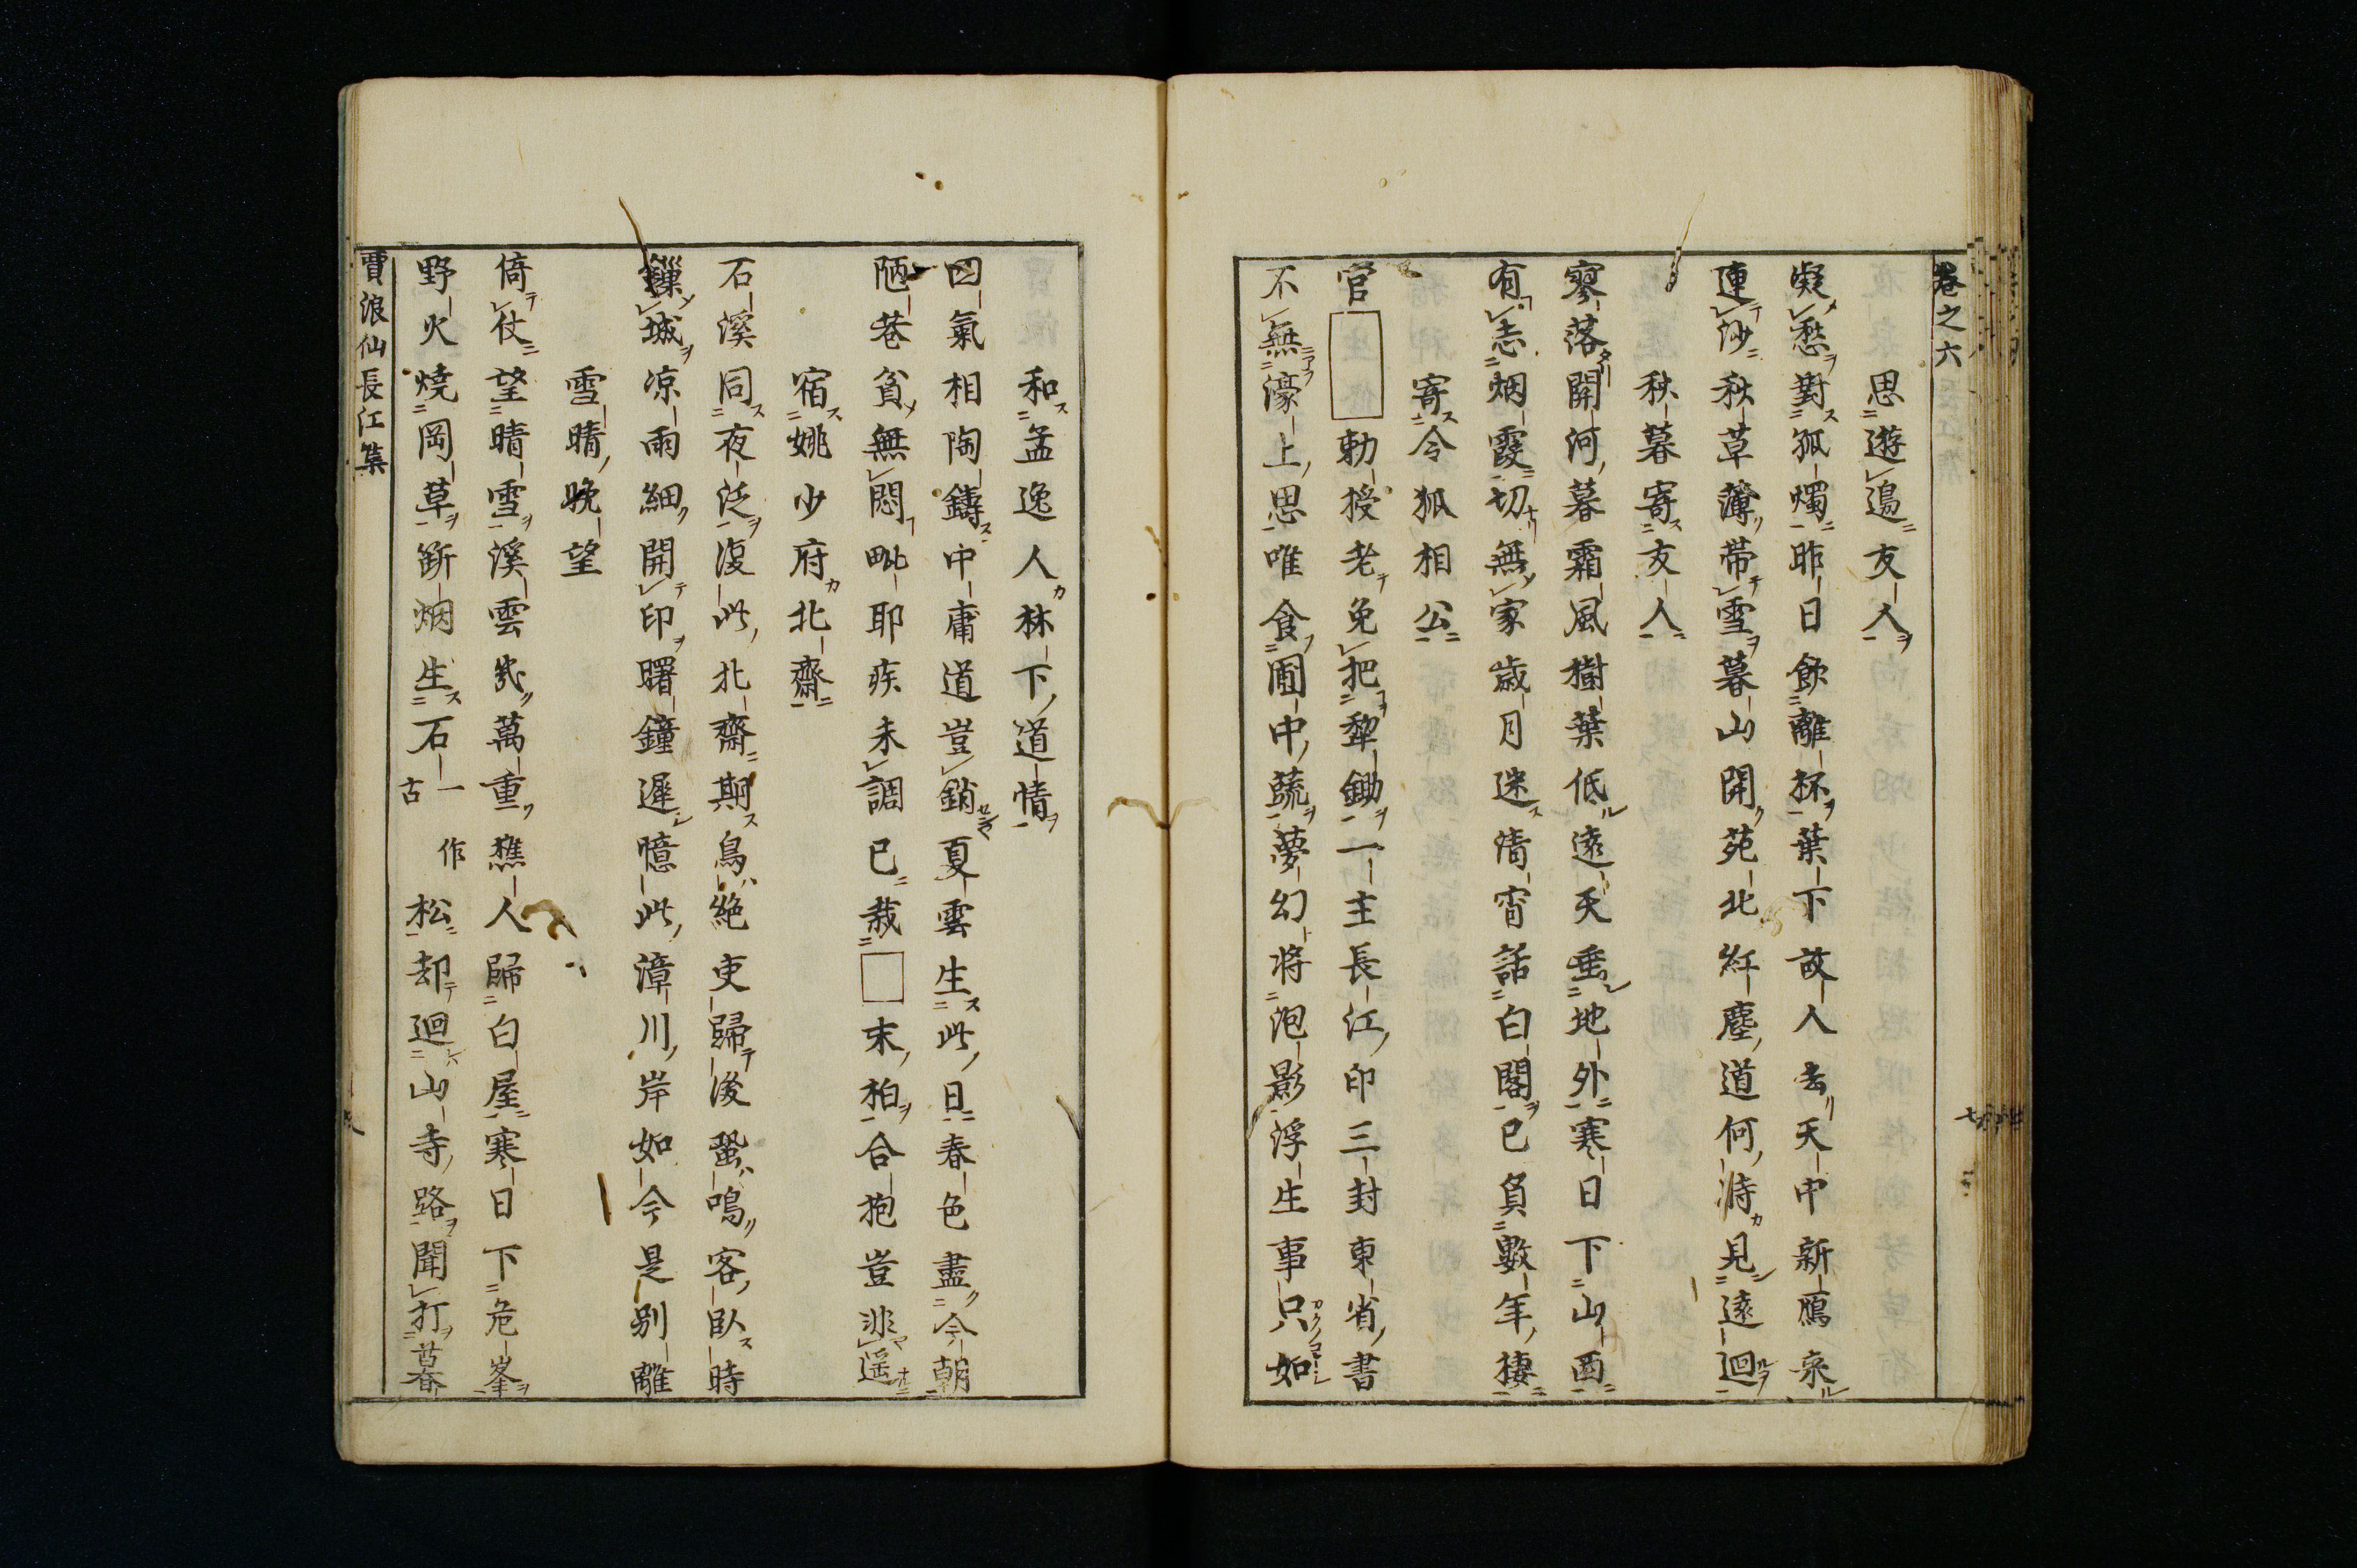 卷之六
思遊邉友人
凝愁對孤燭昨日飲離杯葉下故人去天中新鴈來
連沙秋草薄帶雪暮山開苑北紅塵道何時見遠迴
秋暮寄友人
寥落關河暮霜風樹葉低遠天垂地外寒日下山西
有志烟霞切無家歳月迷清宵話白閣已負數年棲
寄令狐相公
官□勅授老免把犂鋤一主長江印三封東省書
不無濠上思唯食圃中蔬夢幻將泡影浮生事只如
和孟逸人林下道情
四氣相陶鑄中庸道豈銷夏雲生此日春色盡今朝
陋巷貧無悶毗耶疾未調已栽□末柏合抱豈非遥
宿姚少府北齋
石溪同夜泛復此北齋期鳥絶吏歸後蛩鳴客臥時
鏁城凉雨細開印曙鐘遲憶此漳川岸如今是別離
雪晴晩望
倚仗望晴雪溪雲幾萬重樵人歸白屋寒日下危峯
野火燒岡草斷烟生石一作古松却迴山寺路聞打暮
賈浪仙長江集